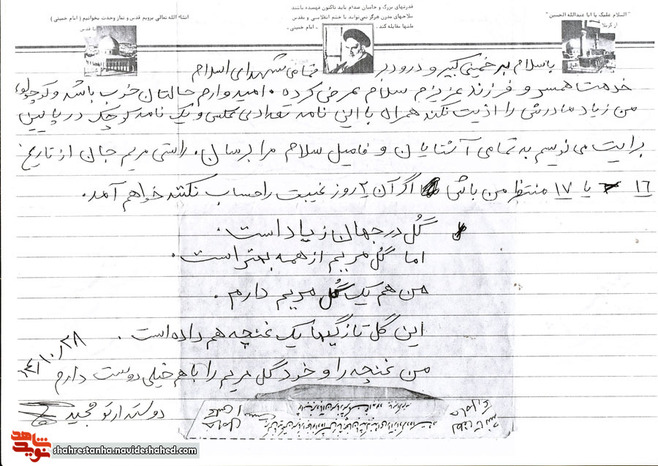 "السلام علیک یا ابا عبدالله الحسین"
قدرتهای بزرگ و حامیان صدام باید تاکنون فهمیده باشند
سلاحهای مدرن هرگز نمی‌توانند با خشم انقلابی و مقدس
ملتها مقابله کند. - امام خمینی -
انشاء الله تعالی برویم قدس و نماز وحدت بخوانیم ( امام خمینی )
با سلام بر خمینی کبیر و درود بر تمامی شهدای اسلام
خدمت همسر و فرزند عزیزم سلام عرض کرده. امیدوارم حالتان خوب باشد و کوچولوی
من زیاد مادرش را اذیت نکند همراه با این نامه تعدادی عکس و یک نامه کوچک در پایین
برایت می نویسم به تمامی آشنایان و فامیل سلام مرا برسان. راستی مریم جان از تاریخ
۱۶ یا ۱۷ منتظر من باش اگر آن ۲ روز غیبت را حساب نکنند خواهم آمد.
گُل در جهان زیاد است.
اما گُل مریم از همه بهتر است.
من هم یک گُل مریم دارم.
این گل تازگیها یک غنچه هم داده است.
من غنچه را و خود گل مریم را با هم خیلی دوست دارم
دوستدار تو مجید
۶۴/۱۰/۲۸
نوید شاهد
shahrestanha.navideshahed.com